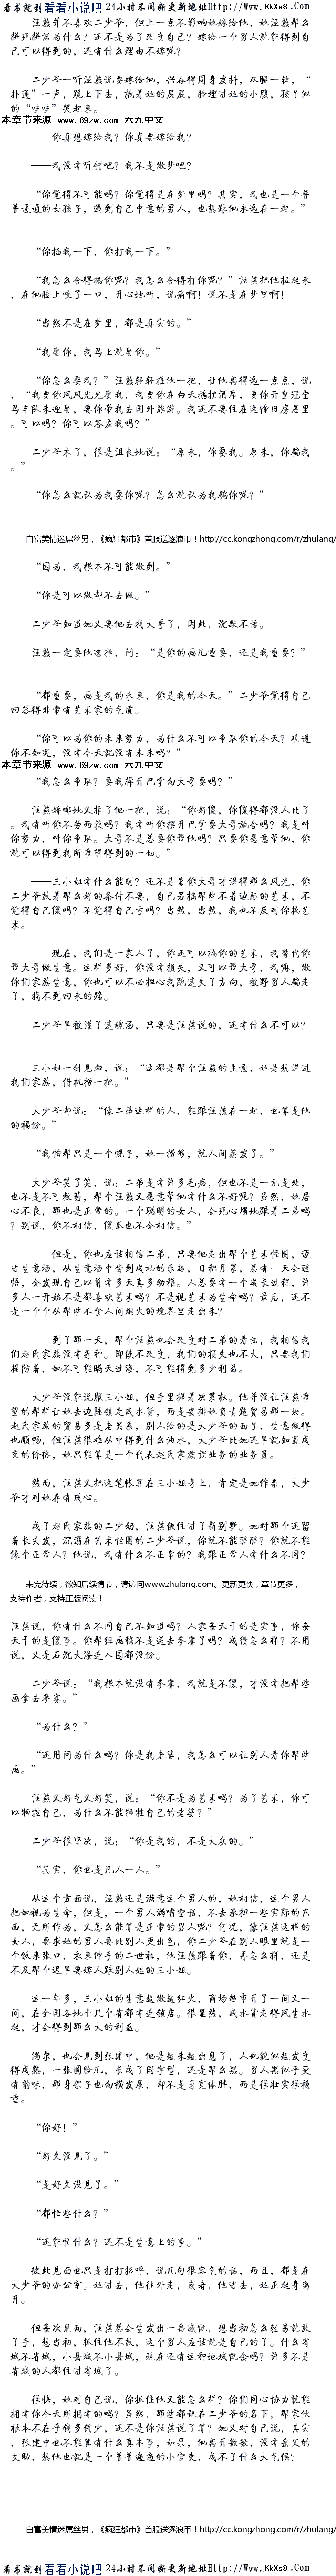 看书就到 看看小说吧 24小时不间断更新地址Http://Www.KkXs8.Com
汪燕并不喜欢二少爷，但上一点不影响她嫁给他，她汪燕那么
拼死拼活为什么？还不是为了改变自己？嫁给一个男人就能得到自
己可以得到的，还有什么理由不嫁呢？
二少爷一听汪燕说要嫁给他，兴奋得周身发抖，双腿一软，“
扑通”一声，跪上下去，抱着她的屁屁，脸埋进她的小腹，孩子似
的“哇哇”哭起来。
本章节来源 www.69zw.com 六九中文
——你真想嫁给我？你真要嫁给我？
——我没有听错吧？我不是做梦吧？
“你觉得不可能吗？你觉得是在梦里吗？其实，我也是一个普
普通通的女孩子，遇到自己中意的男人，也想跟他永远在一起。”
“你掐我一下，你打我一下。”
“我怎么舍得掐你呢？我怎么舍得打你呢？”汪燕把他拉起来
，在他脸上咬了一口，开心地听，说痛啊！说不是在梦里啊！
“当然不是在梦里，都是真实的。”
“我娶你，我马上就娶你。”
“你怎么娶我？”汪燕轻轻推他一把，让他离得远一点点，说
，“我要你风风光光娶我，我要你在白天鹅摆酒席，要你开皇冠宝
马车队来迎娶，要你带我去国外旅游。我还不要住在这幢旧房屋里
。可以吗？你可以答应我吗？”
二少爷木了，很是沮丧地说：“原来，你耍我。原来，你骗我
。”
“你怎么就认为我耍你呢？怎么就认为我骗你呢？”
白富美情迷屌丝男，《疯狂都市》首服送逐浪币！http://cc.kongzhong.com/r/zhulang/
“因为，我根本不可能做到。”
“你是可以做却不去做。”
二少爷知道她又要他去找大哥了，因此，沉默不语。
汪燕一定要他选择，问：“是你的画儿重要，还是我重要？”
“都重要，画是我的未来，你是我的今天。”二少爷觉得自己
回答得非常有艺术家的气质。
“你可以为你的未来努力，为什么不可以争取你的今天？难道
你不知道，没有今天就没有未来吗？”
本章节来源 www.69zw.com 六九中文
“我怎么争取？要我摊开巴掌向大哥要吗？”
汪燕娇嗔地又推了他一把，说：“你好傻，你傻得都没人比了
。我有叫你不劳而获吗？我有叫你摆开巴掌要大哥施舍吗？我是叫
你努力，叫你争取。大哥不是总要你帮他吗？只要你愿意帮他，你
就可以得到我所希望得到的一切。”
——三小姐有什么能耐？还不是靠你大哥才混得那么风光，你
二少爷放着那么好的条件不要，自己另搞那些不着边际的艺术，不
觉得自己傻吗？不觉得自己亏吗？当然，当然，我也不反对你搞艺
术。
——现在，我们是一家人了，你还可以搞你的艺术，我替代你
帮大哥做生意。这样多好，你没有损失，又可以帮大哥，我嘛，做
你们家族生意，你也可以不必担心我跑迷失了方向，被野男人骗走
了，找不到回来的路。
二少爷早被灌了迷魂汤，只要是汪燕说的，还有什么不可以？
三小姐一针见血，说：“这都是那个汪燕的主意，她是想混进
我们家族，借机捞一把。”
大少爷却说：“像二弟这样的人，能跟汪燕在一起，也算是他
的福份。”
“我怕那只是一个幌子，她一捞够，就人间蒸发了。”
大少爷笑了笑，说：二弟是有许多毛病，但也不是一无是处，
也不是不可救药，那个汪燕又愿意帮他有什么不好呢？虽然，她居
心不良，那也是正常的。一个聪明的女人，会死心塌地跟着二弟吗
？别说，你不相信，傻瓜也不会相信。”
——但是，你也应该相信二弟，只要他走出那个艺术怪圈，迈
进生意场，从生意场中尝到成功的乐趣，日积月累，总有一天会醒
悟，会发现自己以前有多天真多幼稚。人总要有一个成长过程，许
多人一开始不是都喜欢艺术吗？不是视艺术为生命吗？最后，还不
是一个个从那些不食人间烟火的境界里走出来？
——到了那一天，那个汪燕也会改变对二弟的看法，我相信我
们赵氏家族没有孬种。即使不改变，我们的损失也不大，只要我们
提防着，她不可能瞒天过海，不可能得到多少利益。
大少爷没能说服三小姐，但手里握着决策权。他并没让汪燕希
望的那样让她去边陲镇走成水货，而是要掉她负责跑贸易那一块。
赵氏家族的贸易多是老关系，别人给的是大少爷的面子，生意做得
也顺畅，但汪燕很难从中得到什么油水，大少爷比她还早就知道成
交的价格，她只能算是一个代表赵氏家族谈业务的业务员。
然而，汪燕又把这笔帐算在三小姐身上，肯定是她作祟，大少
爷才对她存有戒心。
成了赵氏家族的二少奶，汪燕依住进了新别墅。她对那个还留
着长头发，沉溺在艺术怪圈的二少爷说，你就不能醒醒？你就不能
像个正常人？他说，我有什么不正常的？我跟正常人有什么不同？
未完待续，欲知后续情节，请访问www.zhulang.com。更新更快，章节更多，
支持作者，支持正版阅读！
汪燕说，你有什么不同自己不知道吗？人家每天干的是实事，你每
天干的是傻事。你那组画稿不是送去参赛了吗？成绩怎么样？不用
说，又是石沉大海连入围都没份。
二少爷说：“我根本就没有参赛，我就是不傻，才没有把那些
画拿去参赛。”
“为什么？”
“还用问为什么吗？你是我老婆，我怎么可以让别人看你那些
画。”
汪燕又好气又好笑，说：“你不是为艺术吗？为了艺术，你可
以牺牲自己，为什么不能牺牲自己的老婆？”
二少爷很坚决，说：“你是我的，不是大众的。”
“其实，你也是凡人一人。”
从这个方面说，汪燕还是满意这个男人的，她相信，这个男人
把她视为生命，但是，一个男人满嘴空话，不去承担一些实际的东
西，无所作为，又怎么能算是正常的男人呢？何况，像汪燕这样的
女人，要求她的男人要比别人更出色，你二少爷在别人眼里就是一
个饭来张口，衣来伸手的二世祖，他汪燕跟着你，再怎么拼，还是
不及那个迟早要嫁人跟别人姓的三小姐。
这一年多，三小姐的生意越做越红火，商场超市开了一间又一
间，在全国各地十几个省都有连锁店。很显然，成水货走得风生水
起，才会得到那么大的利益。
偶尔，也会见到张建中，他是越来越出息了，人也貌似越发变
得成熟，一张圆脸儿，长成了国字型，还是那么黑。男人黑似乎更
有韵味，那身架子也向横发展，却不是身宽体胖，而是很壮实很稳
重。
“你好！”
“好久没见了。”
“是好久没见了。”
“都忙些什么？”
“还能忙什么？还不是生意上的事。”
彼此见面也只是打打招呼，说几句很客气的话，而且，都是在
大少爷的办公室。她进去，他往外走，或者，他进去，她正起身离
开。
但每次见面，汪燕总会生发出一番感慨，想当初怎么轻易就放
了手，想当初，抓住他不放，这个男人应该就是自己的了。什么省
城不省城，小县城不小县城，现在还有这种地域概念吗？许多不是
省城的人都住进省城了。
很快，她对自己说，你抓住他又能怎么样？你们同心协力就能
拥有你今天所拥有的吗？虽然，那些都记在二少爷的名下，那家伙
根本不在乎钱多钱少，还不是你汪燕说了算？她又对自己说，其实
，张建中也不能算有什么真本事，如果，他离开敏敏，没有岳父的
支助，想他也就是一个普普通通的小官吏，成不了什么大气候？
白富美情迷屌丝男，《疯狂都市》首服送逐浪币！http://cc.kongzhong.com/r/zhulang/
看书就到 看看小说吧 24小时不间断更新地址Http://Www.KkXs8.Com